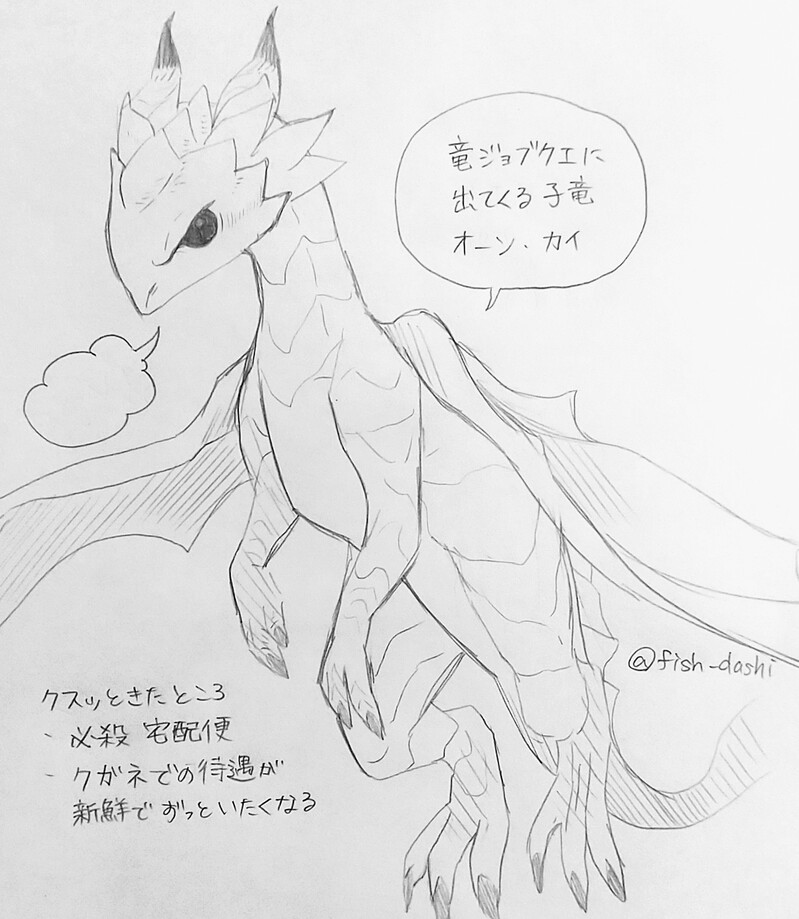 竜ジョブクエに
出てくる子竜
オーン・カイ
@fish_dashi
クスッときたところ
・必殺 宅配便
・クガネでの待遇が
新鮮でずっといたくなる